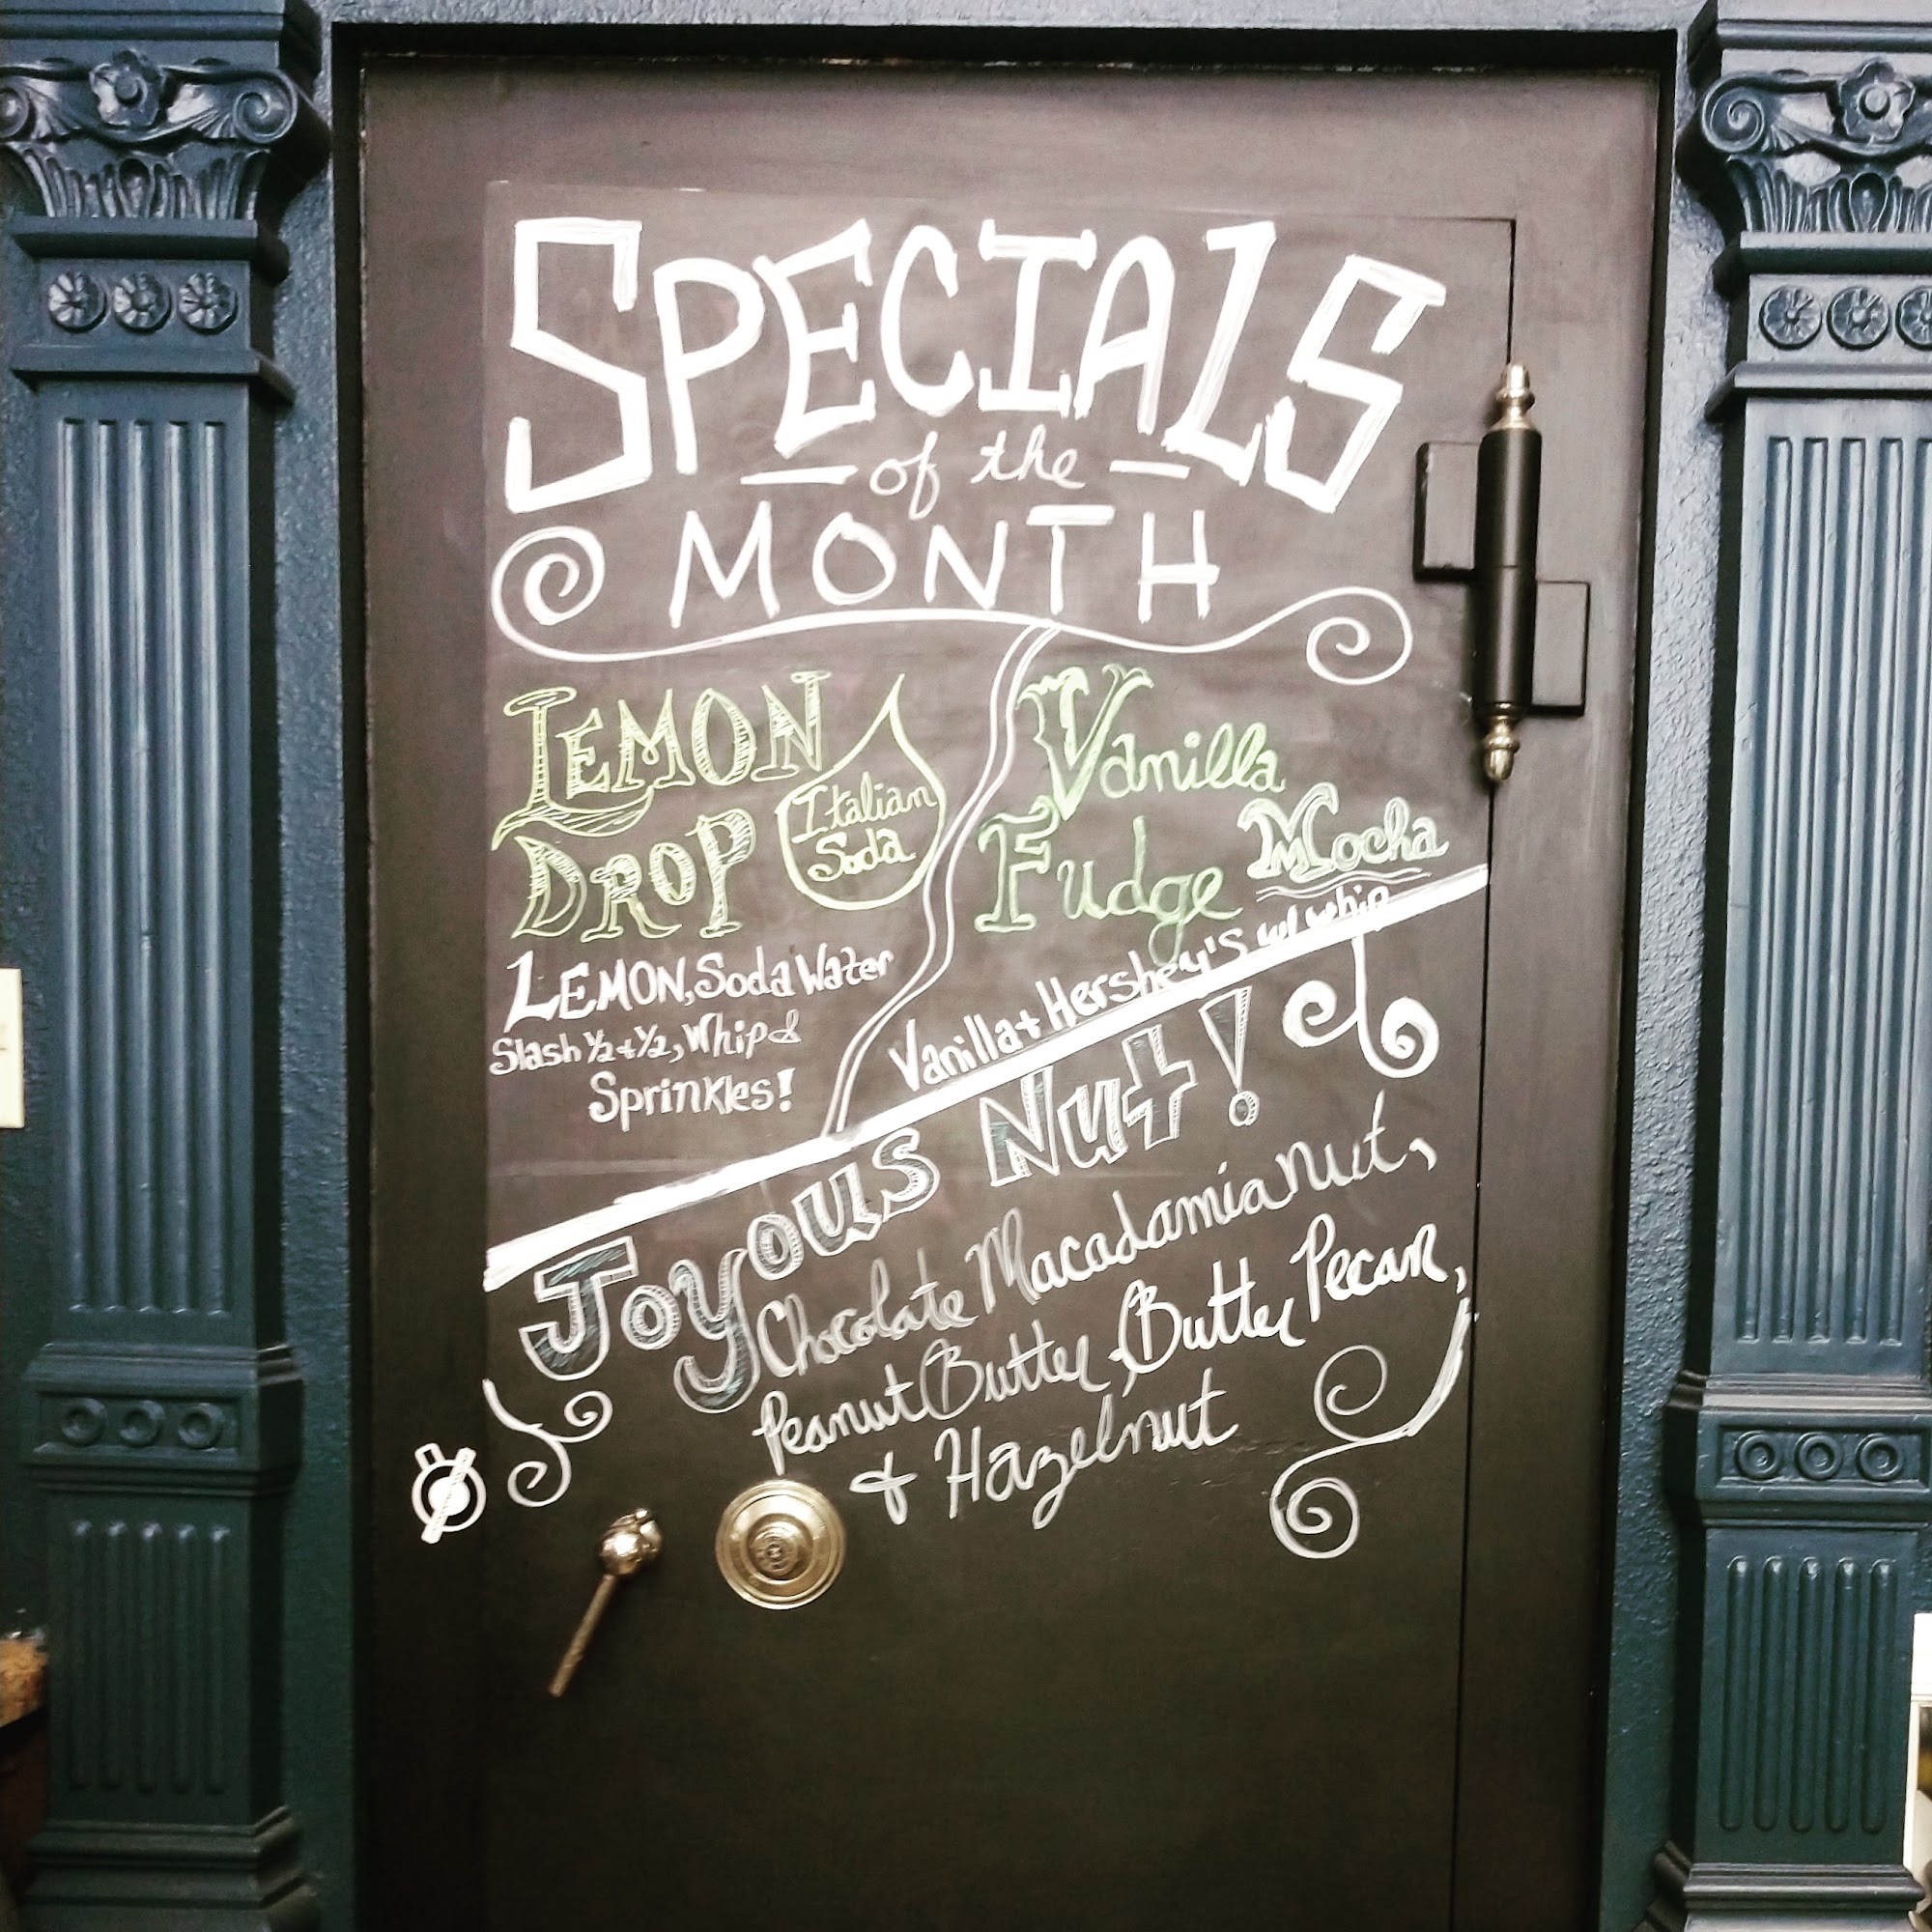 SPECIALS
of the
MONTH
LEMON
DROP
Italian
Soda
LEMON, Soda Water
Slash ½ + ½, Whip &
Sprinkles!
Vanilla
Fudge Mocha
Vanilla + Hershey's w/ whip
Joyous Nut!
Chocolate Macadamia nut,
Peanut Butter, Butter Pecan,
& Hazelnut